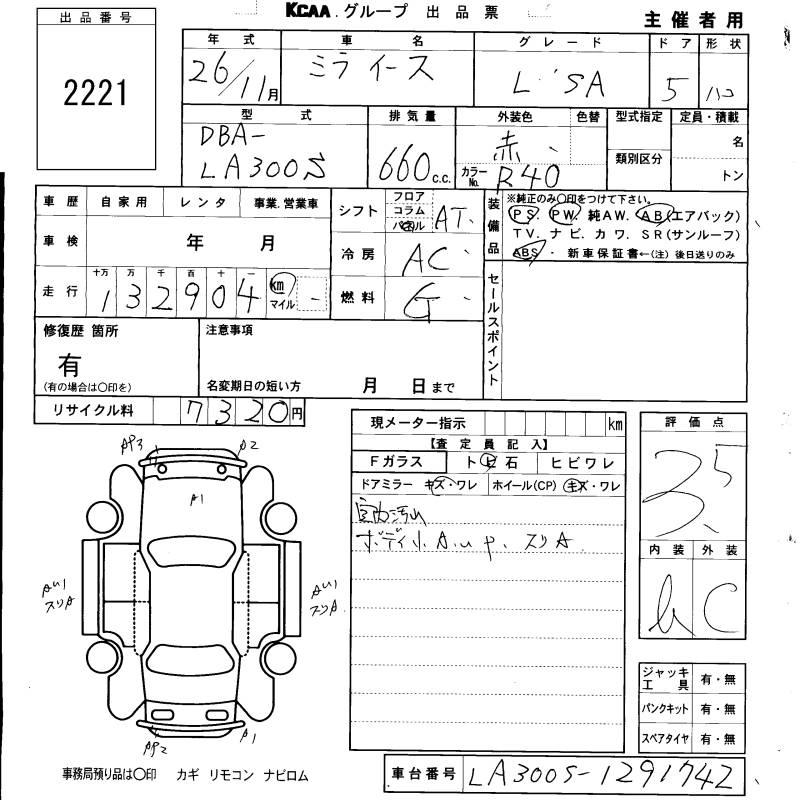 KCAA グループ 出品票
主催者用
出品番号
2221
年式 車名 グレード ドア 形状
26/11月 ミライース L・SA 5 ハコ
型式 排気量 外装色 色替 型式指定 定員・積載
DBA-
LA300S
660 c.c.
赤
カラーNo. R40
類別区分
名
トン
車歴 自家用 レンタ 事業.営業車
車検 年 月
走行 十万 万 千 百 十 一
132904 km マイル
シフト フロア コラム パネル AT
冷房 AC
燃料 G
装備品
※純正のみ〇印をつけて下さい。
PS. PW. 純AW. AB(エアバック)
TV. ナビ. カワ. SR(サンルーフ)
ABS・ 新車保証書←(注) 後日送りのみ
セールスポイント
修復歴 箇所
有
(有の場合は〇印を)
注意事項
名変期日の短い方 月 日まで
リサイクル料 7320円
現メーター指示 km
【査定員記入】
Fガラス トビ石 ヒビワレ
ドアミラー キズ・ワレ ホイール(CP) キズ・ワレ
室内汚れ
ボディ小A.u.p. スリA
評価点
3.5
内装 外装
C
ジャッキ工具 有・無
パンクキット 有・無
スペアタイヤ 有・無
AP3 A2
A1
AU1
スリA
AU1
スリA
AP2 A1
事務局預り品は〇印 カギ リモコン ナビロム
車台番号 LA300S-1291742